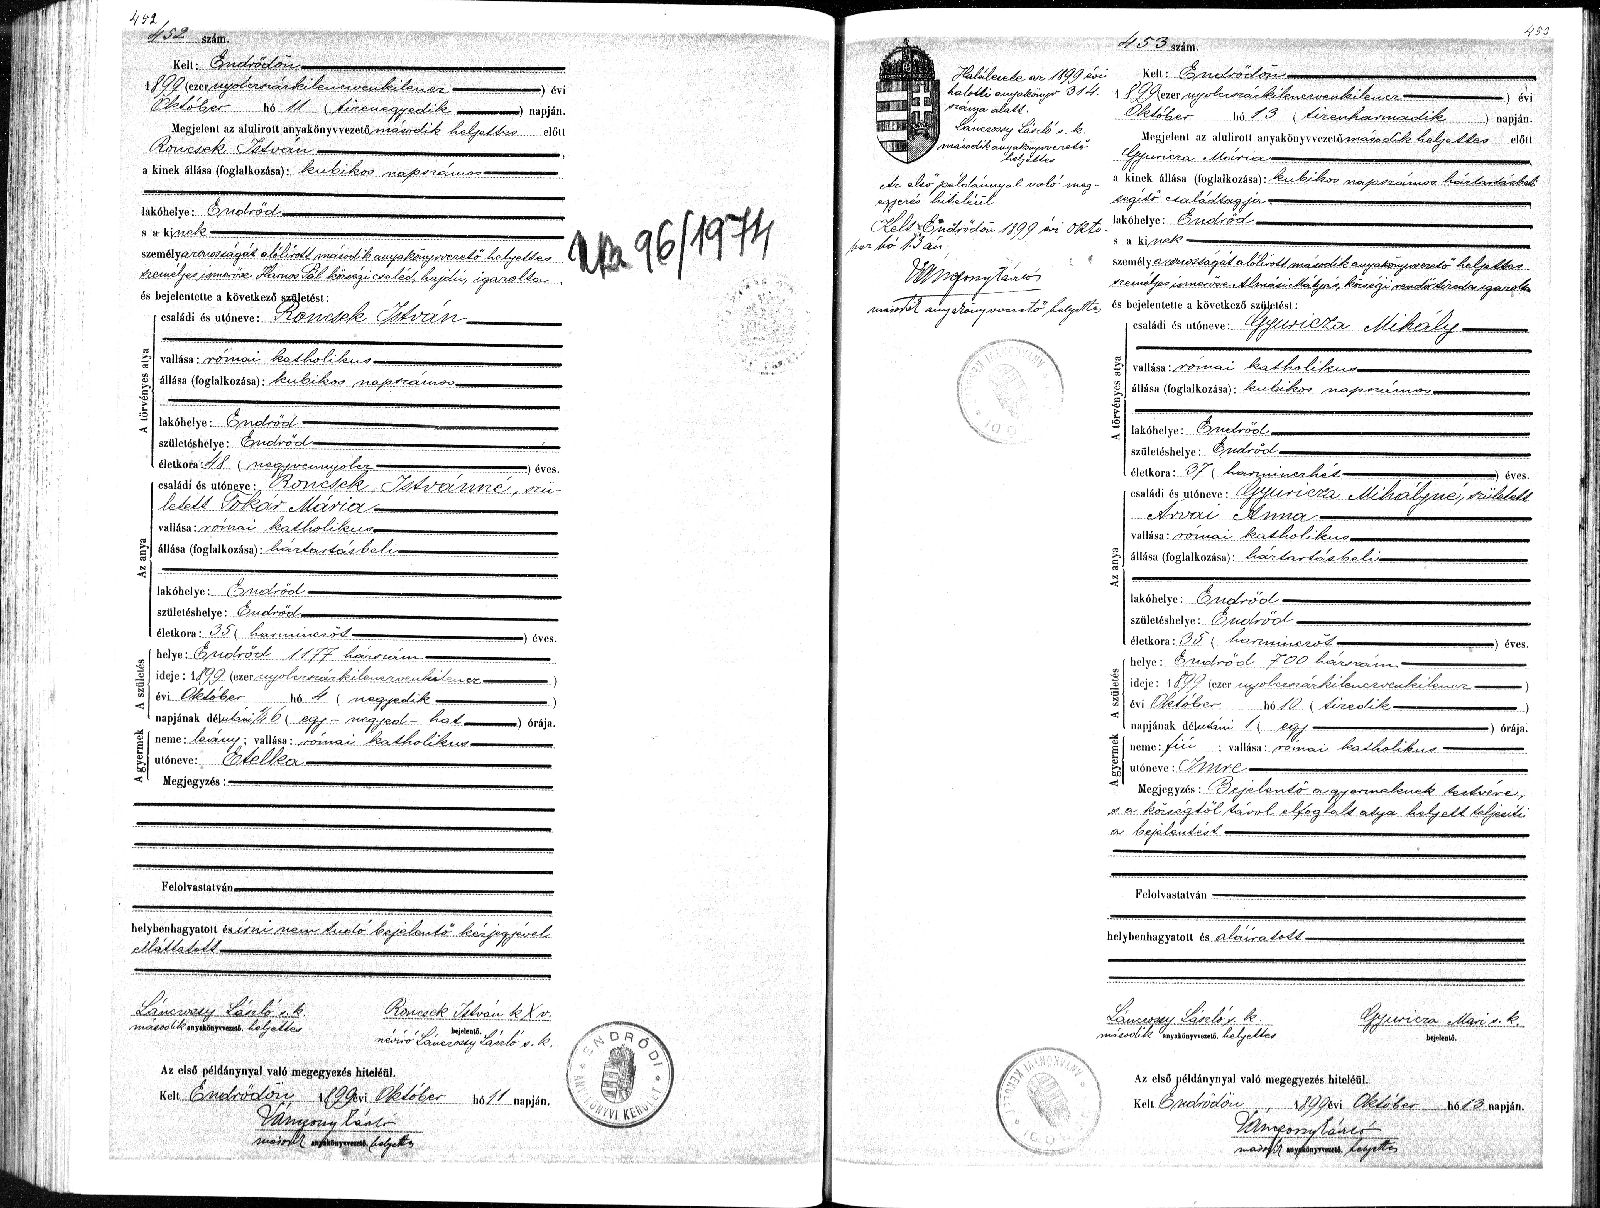 452
452 szám.
Kelt: Endrődön
1899 (ezer nyolczszázkilenczvenkilencz) évi
Október hó 11 (tizenegyedik) napján.
Megjelent az alulirott anyakönyvvezető második helyettes előtt
Roncsek István,
a kinek állása (foglalkozása): kubikos napszámos
lakóhelye: Endrőd
s a kinek
személyazonosságát alólirott második anyakönyvvezető helyettes
személyes ismerőse Harnos Pál községi család, hajdú, igazolta.
és bejelentette a következő születést:
A törvényes atya
családi és utóneve: Roncsek István
vallása: római katholikus
állása (foglalkozása): kubikos napszámos
lakóhelye: Endrőd
születéshelye: Endrőd
életkora: 48 (negyvennyolcz) éves.
Az anya
családi és utóneve: Roncsek Istvánné, szü-
letett Tokár Mária
vallása: római katholikus
állása (foglalkozása): háztartásbeli
lakóhelye: Endrőd
születéshelye: Endrőd
életkora: 35 (harminczöt) éves.
A születés
helye: Endrőd 1177 házszám
ideje: 1899 (ezer nyolczszázkilenczvenkilencz)
évi Október hó 4 (negyedik)
napjának délutáni ¼6 (egy-negyed-hat) órája.
A gyermek
neme: leány; vallása: római katholikus
utóneve: Etelka
Megjegyzés:
Felolvastatván
helybenhagyatott és irni nem tudó bejelentő kézjegyével
elláttatott
Lánczossy László s. k.
második anyakönyvvezető helyettes
Roncsek István k X v.
bejelentő.
névíró Lánczossy László s. k.
Az első példánynyal való megegyezés hiteléül.
Kelt Endrődön 1899 évi Október hó 11 napján.
második anyakönyvvezető helyettes
96/1974
ENDRŐDI
ANYAKÖNYVI KERÜLET
453
453 szám.
Halálesete az 1899 évi
halotti anyakönyv 314
száma alatt
Lánczossy László s. k.
második anyakönyvvezető
helyettes
Az első példánynyal való meg-
egyezés hiteléül
Kelt Endrődön 1899 évi Októ-
ber hó 13 án
második anyakönyvvezető helyettes
Kelt: Endrődön
1899 (ezer nyolczszázkilenczvenkilencz) évi
Október hó 13 (tizenharmadik) napján.
Megjelent az alulirott anyakönyvvezető második helyettes előtt
Gyuricza Mária
a kinek állása (foglalkozása): kubikos napszámos háztartásbeli
segitő családtagja
lakóhelye: Endrőd
s a kinek
személyazonosságát alólirott második anyakönyvvezető helyettes
személyes ismerőse Almási Mátyás, községi rendőrtizedes igazolta
és bejelentette a következő születést:
A törvényes atya
családi és utóneve: Gyuricza Mihály
vallása: római katholikus
állása (foglalkozása): kubikos napszámos
lakóhelye: Endrőd
születéshelye: Endrőd
életkora: 37 (harminczhét) éves.
Az anya
családi és utóneve: Gyuricza Mihályné, született
Arvai Anna
vallása: római katholikus
állása (foglalkozása): háztartásbeli
lakóhelye: Endrőd
születéshelye: Endrőd
életkora: 35 (harminczöt) éves.
A születés
helye: Endrőd 700 házszám
ideje: 1899 (ezer nyolczszázkilenczvenkilencz)
évi Október hó 10 (tizedik)
napjának délutáni 1 (egy) órája.
A gyermek
neme: fiú; vallása: római katholikus
utóneve: Imre
Megjegyzés: Bejelentő a gyermeknek testvére,
s a községtől távol elfoglalt atya helyett teljesiti
a bejelentést
Felolvastatván
helybenhagyatott és aláiratott
Lánczossy László s. k.
második anyakönyvvezető helyettes
Gyuricza Mari s. k.
bejelentő.
Az első példánynyal való megegyezés hiteléül.
Kelt Endrődön, 1899 évi Október hó 13 napján.
második anyakönyvvezető helyettes